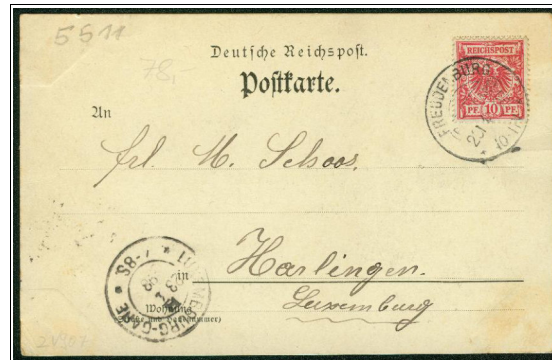 5511
78,
Deutsche Reichspost.
Postkarte.
REICHSPOST
PF 10 PF
FREUDENBURG
An
Frl. M. Schoos.
in Harlingen.
Luxemburg
LUXEMBURG-GARE * 7-8S *
Wohnung
(Straße und Hausnummer)